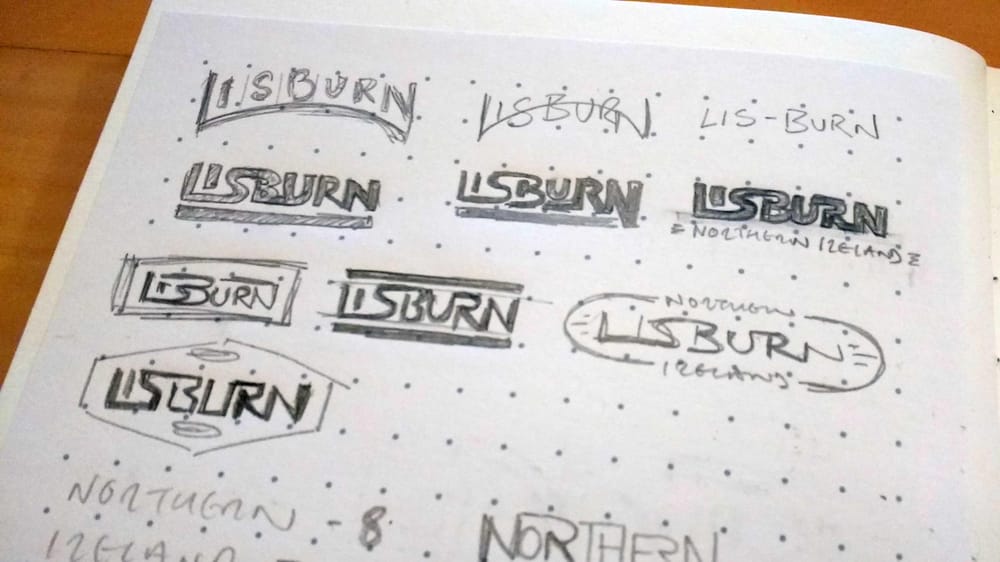 LISBURN
LISBURN
LIS-BURN
LISBURN
LISBURN
LISBURN
NORTHERN IRELAND
LISBURN
LISBURN
NORTHERN
LISBURN
IRELAND
LISBURN
NORTHERN - 8
IRELAND -
NORTHERN